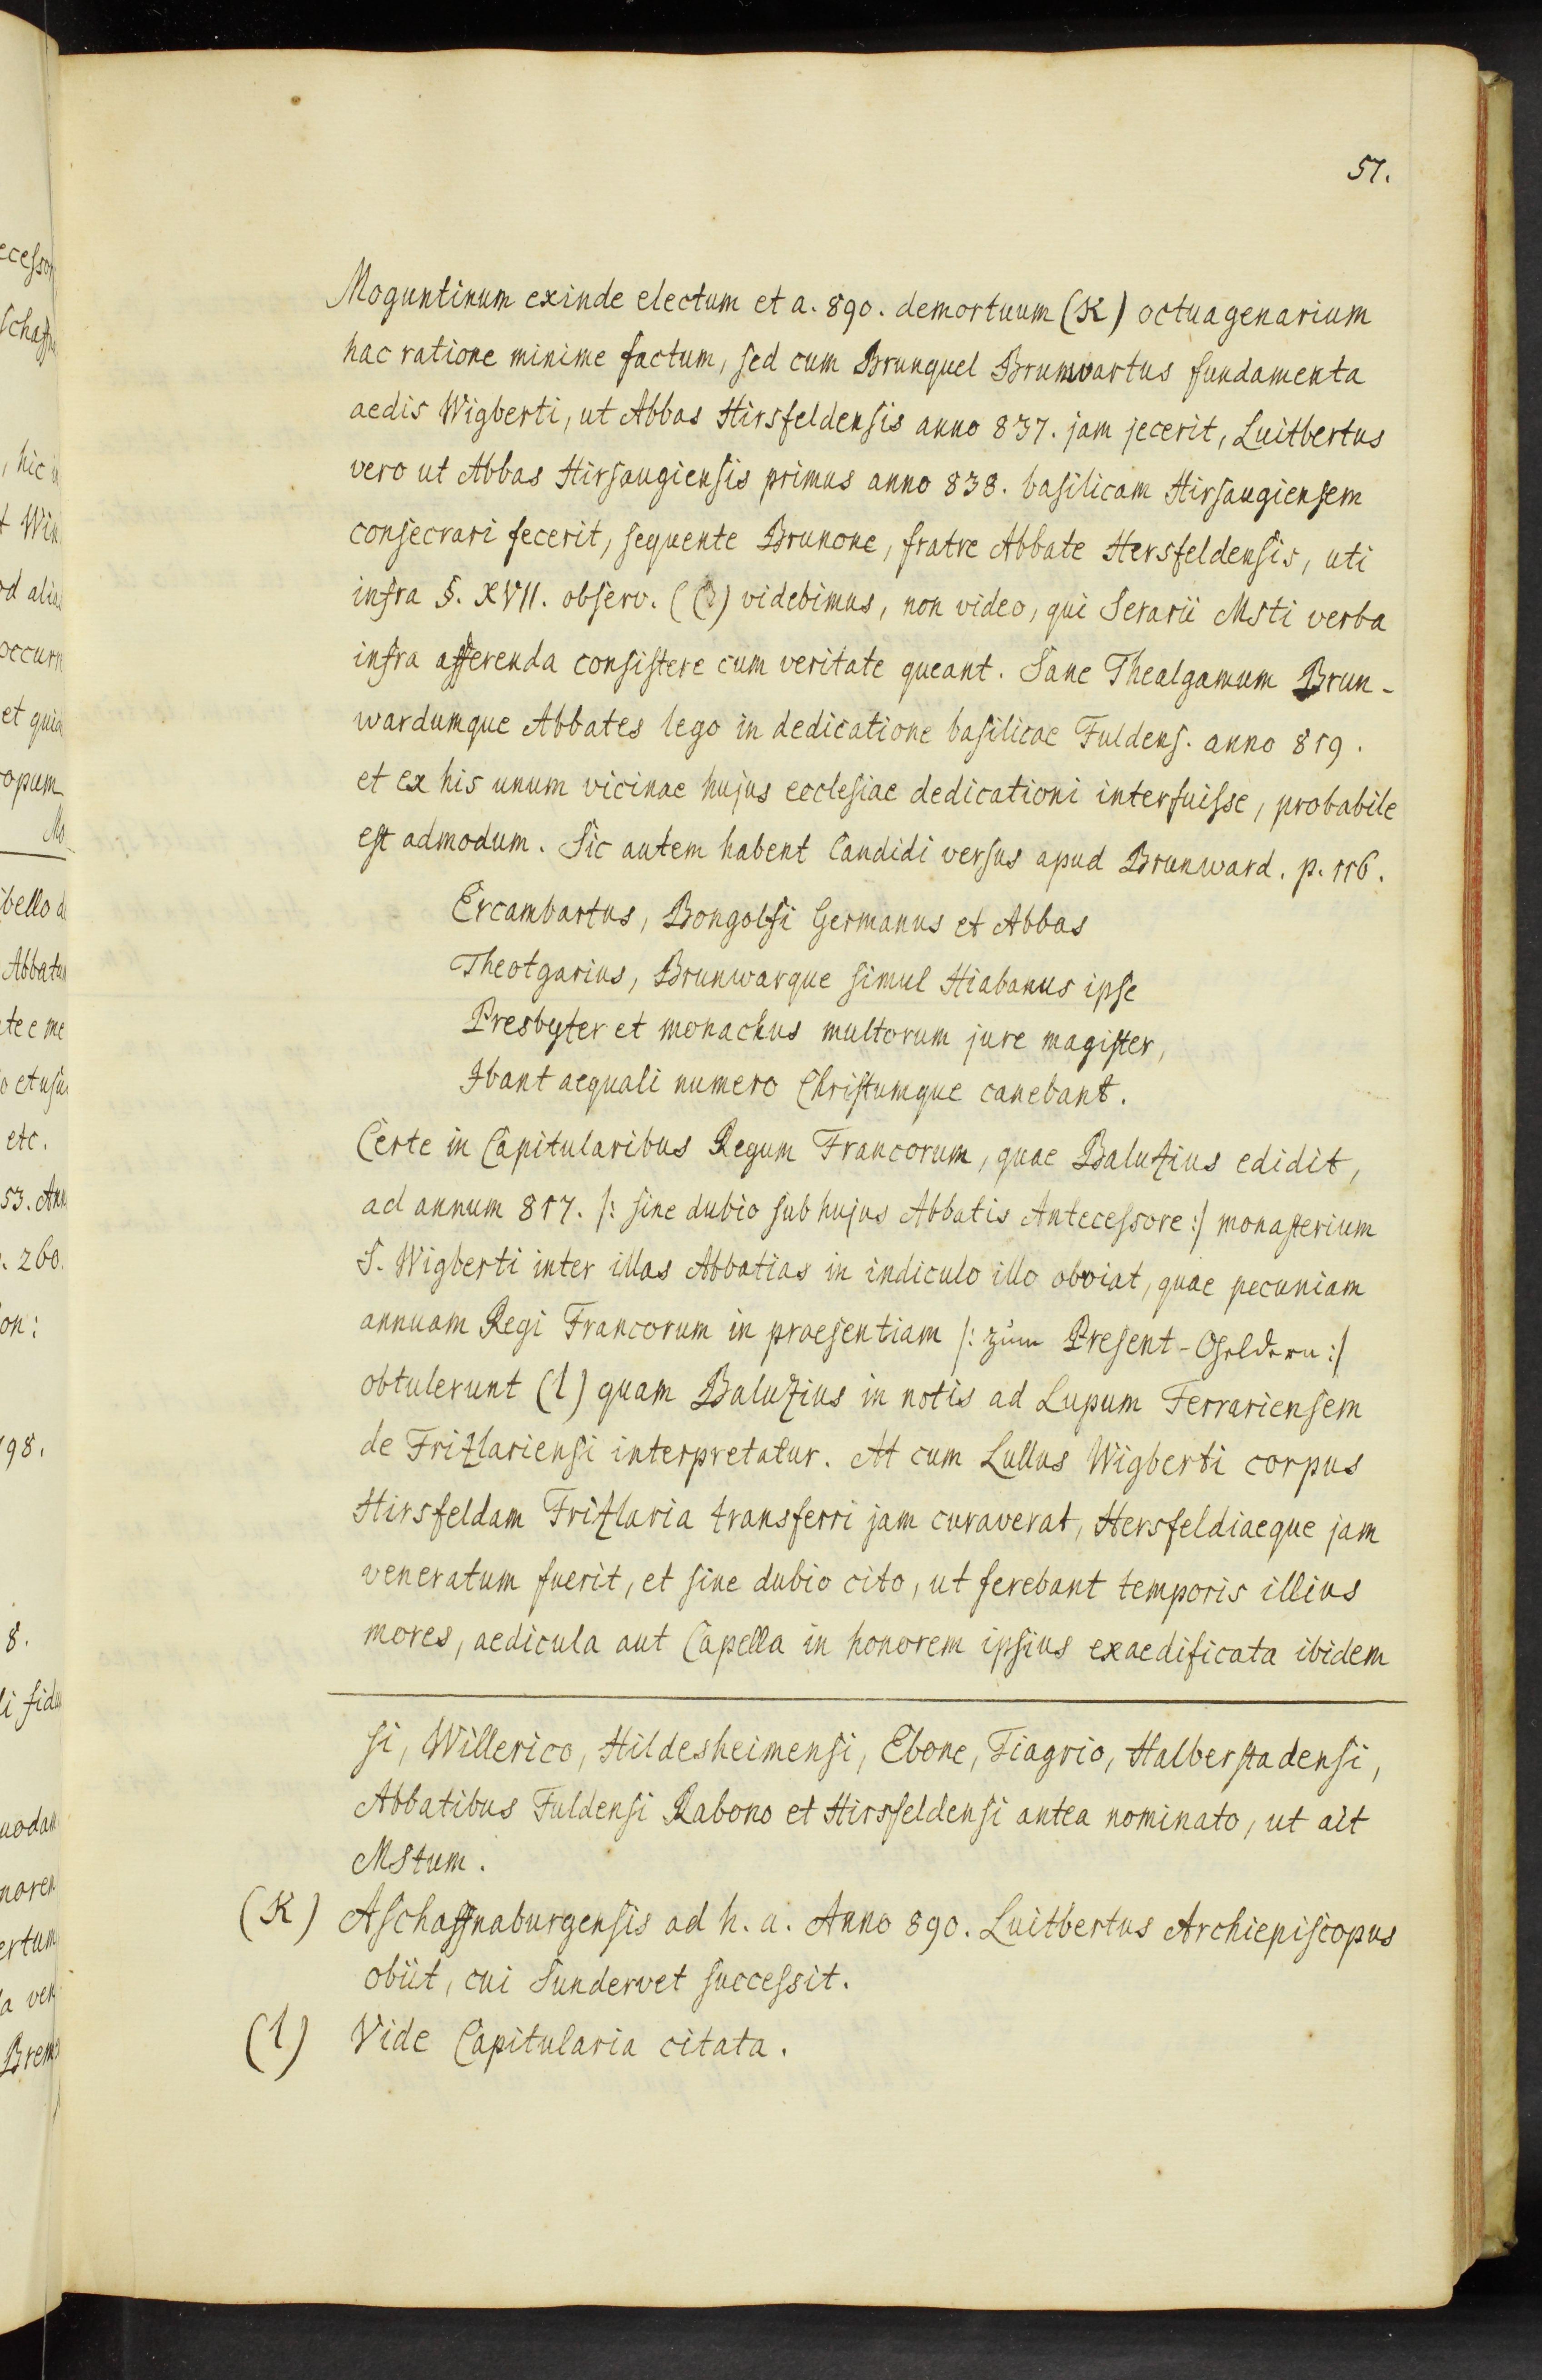 57.
Moguntinum exinde electum et a. 890. demortuum (K) octuagenarium
hac ratione minime factum, sed cum Brunquel Brunwartus fundamenta
aedis Wigberti, ut Abbas Hirsfeldensis anno 837. jam jecerit, Luitbertus
vero ut Abbas Hirsaugiensis primus anno 838. basilicam Hirsaugiensem
consecrari fecerit, sequente Brunone, fratre Abbate Hersfeldensis, uti
infra §. XVII. observ. () videbimus, non video, qui Serarii Msti verba
infra afferenda consistere cum veritate queant. Sane Thealgamum Brun-
wardumque Abbates lego in dedicatione basilicae Fuldens. anno 819.
et ex his unum vicinae hujus ecclesiae dedicationi interfuisse, probabile
est admodum. Sic autem habent Candidi versus apud Brunward. p. 116.
Ercambartus, Bongolfi Germanus et Abbas
Theotgarius, Brunwarque simul Hiabanus ipse
Presbyter et monachus multorum jure magister,
Ibant aequali numero Christumque canebant.
Certe in Capitularibus Regum Francorum, quae Baluzius edidit,
ad annum 817. /: sine dubio sub hujus Abbatis Antecessore :/ monasterium
S. Wigberti inter illas Abbatias in indiculo illo obviat, quae pecuniam
annuam Regi Francorum in praesentiam /: zum Present-Geldern :/
obtulerunt (l) quam Baluzius in notis ad Lupum Ferrariensem
de Frizlariensi interpretatur. At cum Lullus Wigberti corpus
Hirsfeldam Frizlaria transferri jam curaverat, Hersfeldiaeque jam
veneratum fuerit, et sine dubio cito, ut ferebant temporis illius
mores, aedicula aut Capella in honorem ipsius exaedificata ibidem
si, Willerico, Hildesheimensi, Ebone, Tiagrio, Halberstadensi,
Abbatibus Fuldensi Rabono et Hirsfeldensi antea nominato, ut ait
MStum.
(K) Aschaffnaburgensis ad h. a. Anno 890. Luitbertus Archiepiscopus
obiit, cui Sundervet successit.
(l) Vide Capitularia citata.